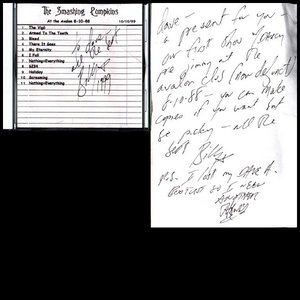 The Smashing Pumpkins
At the Avalon 8-10-88
10/10/99
1 The Vigil
2 Armed To The Teeth
3 Bleed
4 There It Goes
5 My Eternity
6 I Fall
7 Nothing+Everything
8 SZ34
9 Holiday
10 Screaming
11 Nothing+Everything
to Dave
all the best
Billy
1999
Dave -
a present for you -
our first show
pre Jimmy at the
avalon club (now defunct)
8-10-88 - you can make
copies if you want but
be picky - all the
best
Billy
ps. I lost my
so I need
another